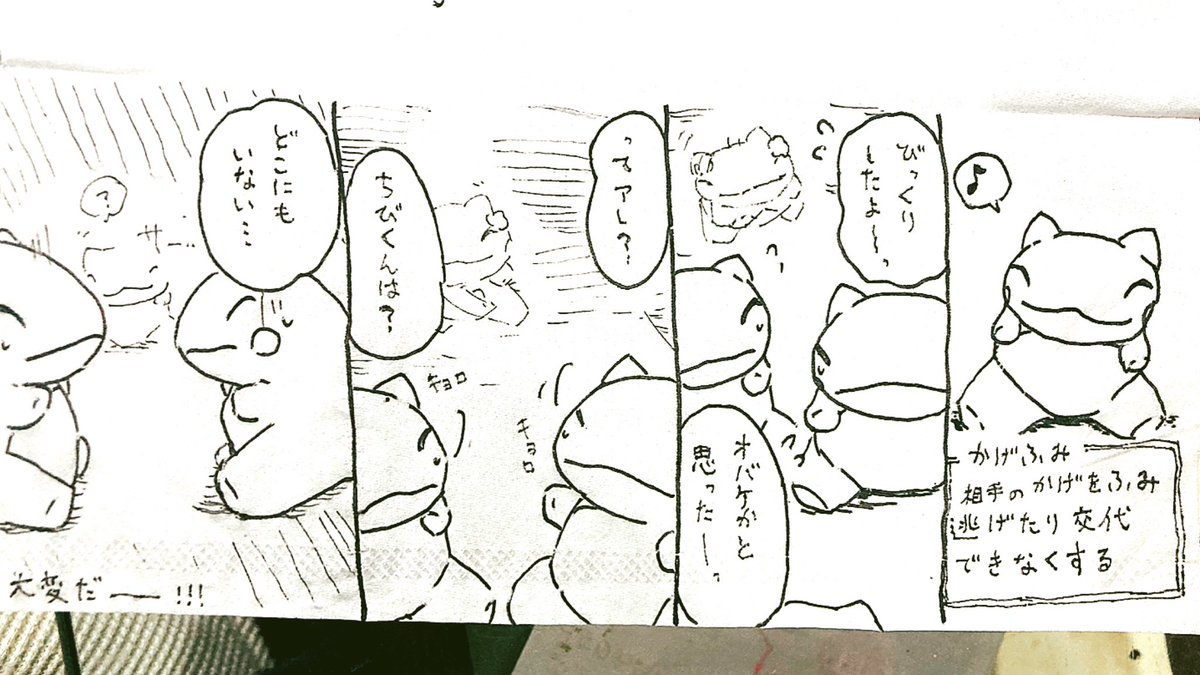 ♪
かげふみ
相手のかげをふみ
逃げたり交代
できなくする
びっくり
したよ〜っ
オバケかと
思ったーっ
ってアレ?
キョロ
キョロ
ちびくんは?
どこにも
いない…
?
サー
大変だー!!!